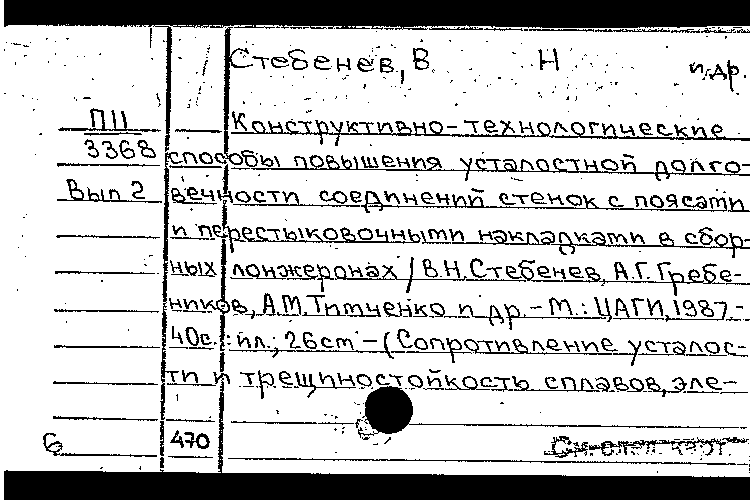 Стебенев, В Н и др.
ПII Конструктивно-технологические
3368 способы повышения усталостной долго-
Вып 2 вечности соединений стенок с поясами
и перестыковочными накладками в сбор-
ных лонжеронах / В.Н. Стебенев, А.Г. Гребе-
ников, А.М. Тимченко и др. - М.: ЦАГИ, 1987.-
40с.: ил.; 26см -(Сопротивление усталос-
ти и трещиностойкость сплавов, эле-
6 470 См. след. карт.